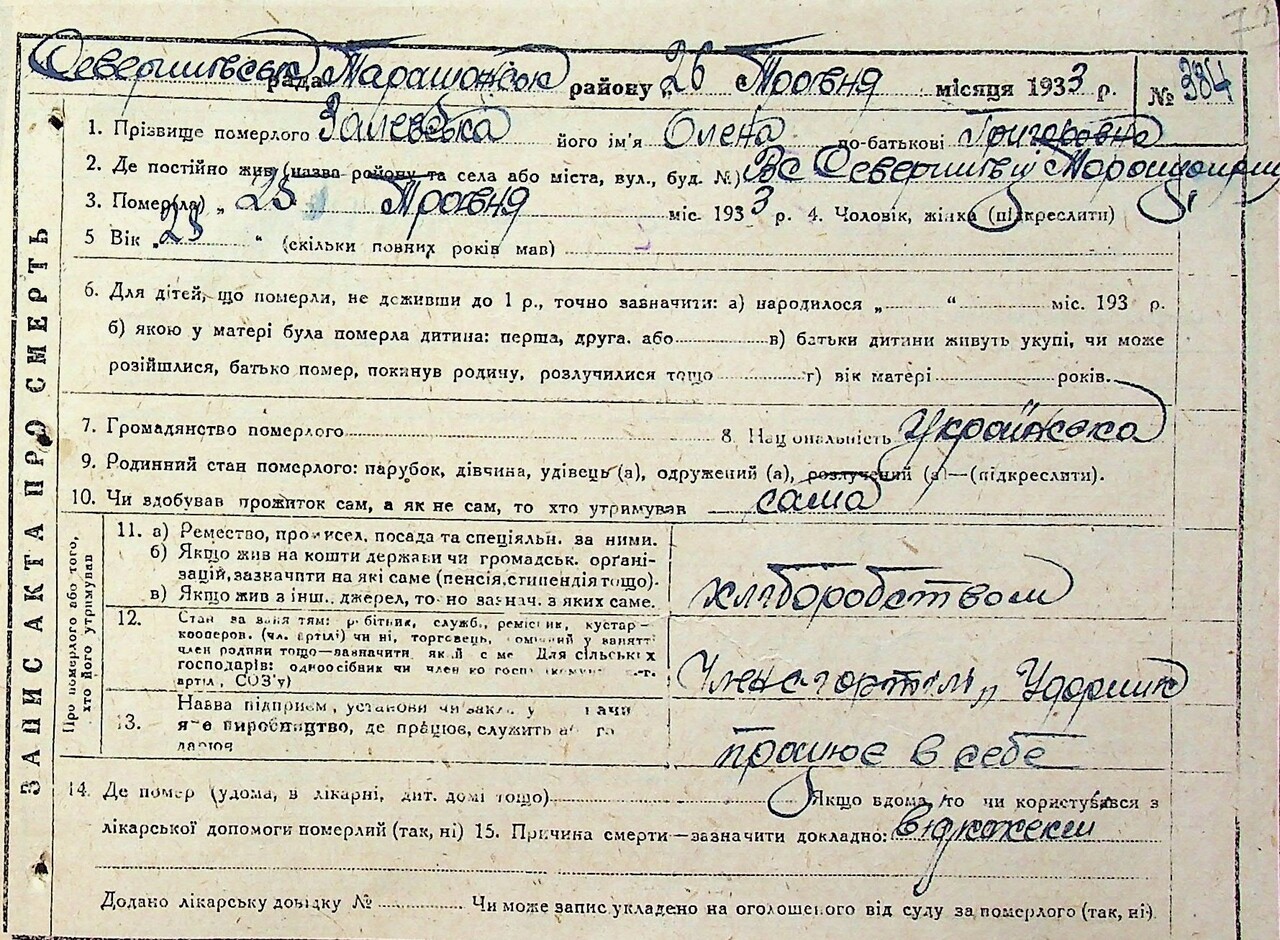 рада Таращанськ району „26 Травня місяця 1933 р. № 384
1. Прізвище померлого Залевська його ім'я Олена по-батькові Григоровна
2. Де постійно жив (назва району та села або міста, вул., буд. №)
3. Помер(ла) „ 25 Травня міс. 1933 р. 4. Чоловік, жінка (підкреслити)
5 Вік „ “ (скільки повних років мав)
6. Для дітей, що померли, не доживши до 1 р., точно зазначити: а) народилося „ “ міс. 193 р.
б) якою у матері була померла дитина: перша, друга. або в) батьки дитини живуть укупі, чи може
розійшлися, батько помер, покинув родину, розлучилися тощо г) вік матері років.
7. Громадянство померлого 8. Національність Українська
9. Родинний стан померлого: парубок, дівчина, удівець (а), одружений (а), розлучений (а)—(підкреслити).
10. Чи здобував прожиток сам, а як не сам, то хто утримував сама
ЗАПИС АКТА ПРО СМЕРТЬ
Про померлого або того,
хто його утримував
11. а) Ремество, промисел, посада та спеціяльн. за ними.
б) Якщо жив на кошти держави чи громадськ. орґані-
зацій, зазначити на які саме (пенсія, стипендія тощо).
в) Якщо жив з інш. джерел, точно зазнач. з яких саме.
хліборобством
12. Стан за заняттям: робітник, служб., ремісник, кустар—
кооперов. (чл. артілі) чи ні, торговець,
член родини тощо—зазначити, який саме Для сільських
господарів: одноосібник чи член
артіл, СОЗ'у)
Ударник
13. Назва підприєм, установи чи
виробництво, де працює, служить або
працює в себе
14. Де помер (удома, в лікарні, дит. домі тощо) Якщо вдома, то чи користувався з
лікарської допомоги померлий (так, ні) 15. Причина смерти—зазначити докладно:
Додано лікарську довідку № Чи може запис укладено на оголошеного від суду за померлого (так, ні).